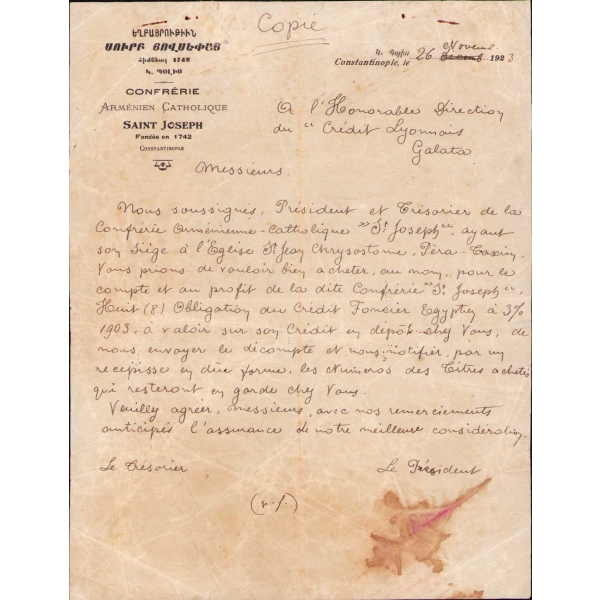 Copie
ԵՂԲԱՅՐՈՒԹԻՒՆ
ՍՈՒՐԲ ՅՈՎՍԷՓԱՅ
Հիմնեալ 1742
Կ. ՊՈԼԻՍ
CONFRÉRIE
ARMÉNIEN CATHOLIQUE
SAINT JOSEPH
Fondée en 1742
CONSTANTINOPLE
Կ. Պոլիս
Constantinople, le 26 Novem. 1923
A l'Honorable Direction
du "Crédit Lyonnais
Galata
Messieurs.
Nous soussignés, Président et Trésorier de la
Confrérie Arménienne-Catholique "St Joseph", ayant
son Siège à l'Eglise St Jean Chrysostome, Péra-Taxim,
Vous prions de vouloir bien acheter, au nom, pour le
compte et au profit de la dite Confrérie "St Joseph",
Huit (8) Obligation du Crédit Foncier Egyptien à 3%
1903, à valoir sur son Crédit en depôt chez Vous, de
nous envoyer le décompte et nous notifier, par un
recepisse en dûe forme, les Numéros des Titres achetés
qui resteront en garde chez Vous.
Veuillez agréer, messieurs, avec nos remerciements
anticipés l'assurance de notre meilleure considération.
Le Trésorier
Le Président